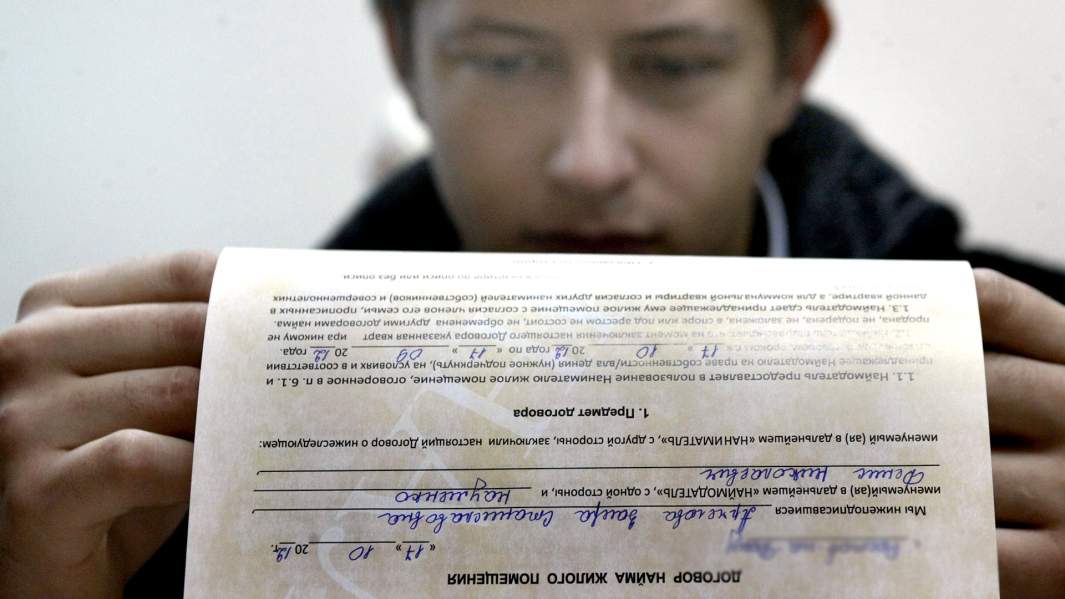 ДОГОВОР НАЙМА ЖИЛОГО ПОМЕЩЕНИЯ
« 17 » 10 20 12 г.
Мы нижеподписавшиеся Заира Станиславовна
именуемый(ая) в дальнейшем «НАЙМОДАТЕЛЬ», с одной стороны, и Науменко
Денис Николаевич
именуемый (ая) в дальнейшем «НАНИМАТЕЛЬ», с другой стороны, заключили настоящий Договор о нижеследующем:
1. Предмет договора
1.1. Наймодатель предоставляет в пользование Нанимателю жилое помещение, оговоренное в п. 6.1. и
принадлежащее Наймодателю на праве собственности/вла дения (нужное подчеркнуть), на условиях и в соответствии
« 17 » 10 20 12 года по « 17 » 09 20 12 года.
на момент заключения настоящего Договора указанная кварт ира никому не
продана, не подарена, не заложена, в споре или под арестом не состоит, не обременена другими договорами найма.
1.3. Наймодатель сдает принадлежащее ему жилое помещение с согласия членов его семьи, прописанных в
данной квартире, а для коммунальной квартиры и согласия других нанимателей (собственников) и совершеннолетних
по описи или без описи